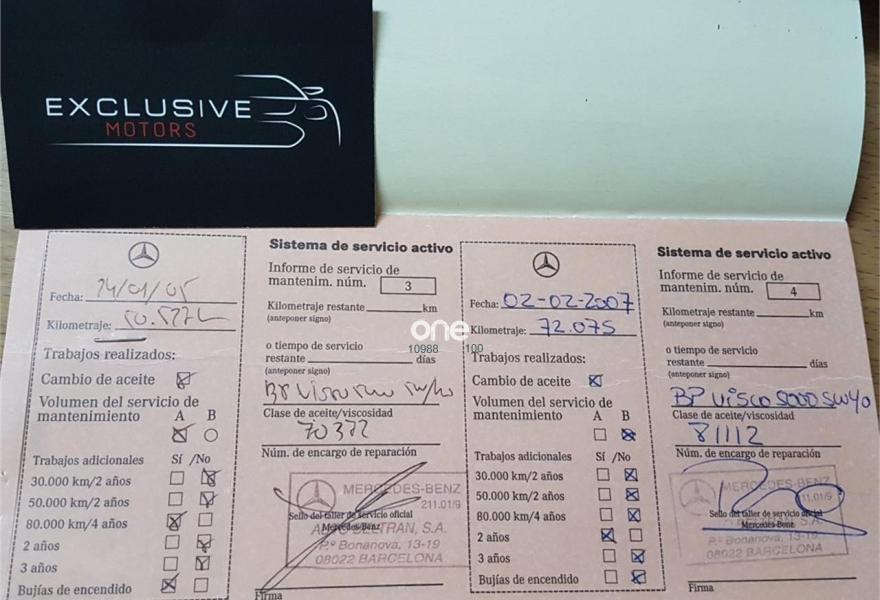 EXCLUSIVE
MOTORS
one
10988 100
Fecha: 14/01/05
Kilometraje:
Trabajos realizados:
Cambio de aceite
Volumen del servicio de
mantenimiento A B
Trabajos adicionales Sí /No
30.000 km/2 años
50.000 km/2 años
80.000 km/4 años
2 años
3 años
Bujías de encendido
Sistema de servicio activo
Informe de servicio de
mantenim. núm. 3
Kilometraje restante km
(anteponer signo)
o tiempo de servicio
restante días
(anteponer signo)
BP
Clase de aceite/viscosidad
70372
Núm. de encargo de reparación
MERCEDES-BENZ
211.01/9
Sello del taller de servicio oficial
Mercedes-Benz
BELTRAN, S.A.
Pº Bonanova, 13-19
08022 BARCELONA
Firma
Fecha: 02-02-2007
Kilometraje: 72.075
Trabajos realizados:
Cambio de aceite
Volumen del servicio de
mantenimiento A B
Trabajos adicionales Sí /No
30.000 km/2 años
50.000 km/2 años
80.000 km/4 años
2 años
3 años
Bujías de encendido
Sistema de servicio activo
Informe de servicio de
mantenim. núm. 4
Kilometraje restante km
(anteponer signo)
o tiempo de servicio
restante días
(anteponer signo)
BP VISCO 5000 5W40
Clase de aceite/viscosidad
81112
Núm. de encargo de reparación
MERCEDES-BENZ
211.01/9
Sello del taller de servicio oficial
Mercedes-Benz
S.A.
Pº Bonanova, 13-19
08022 BARCELONA
Firma